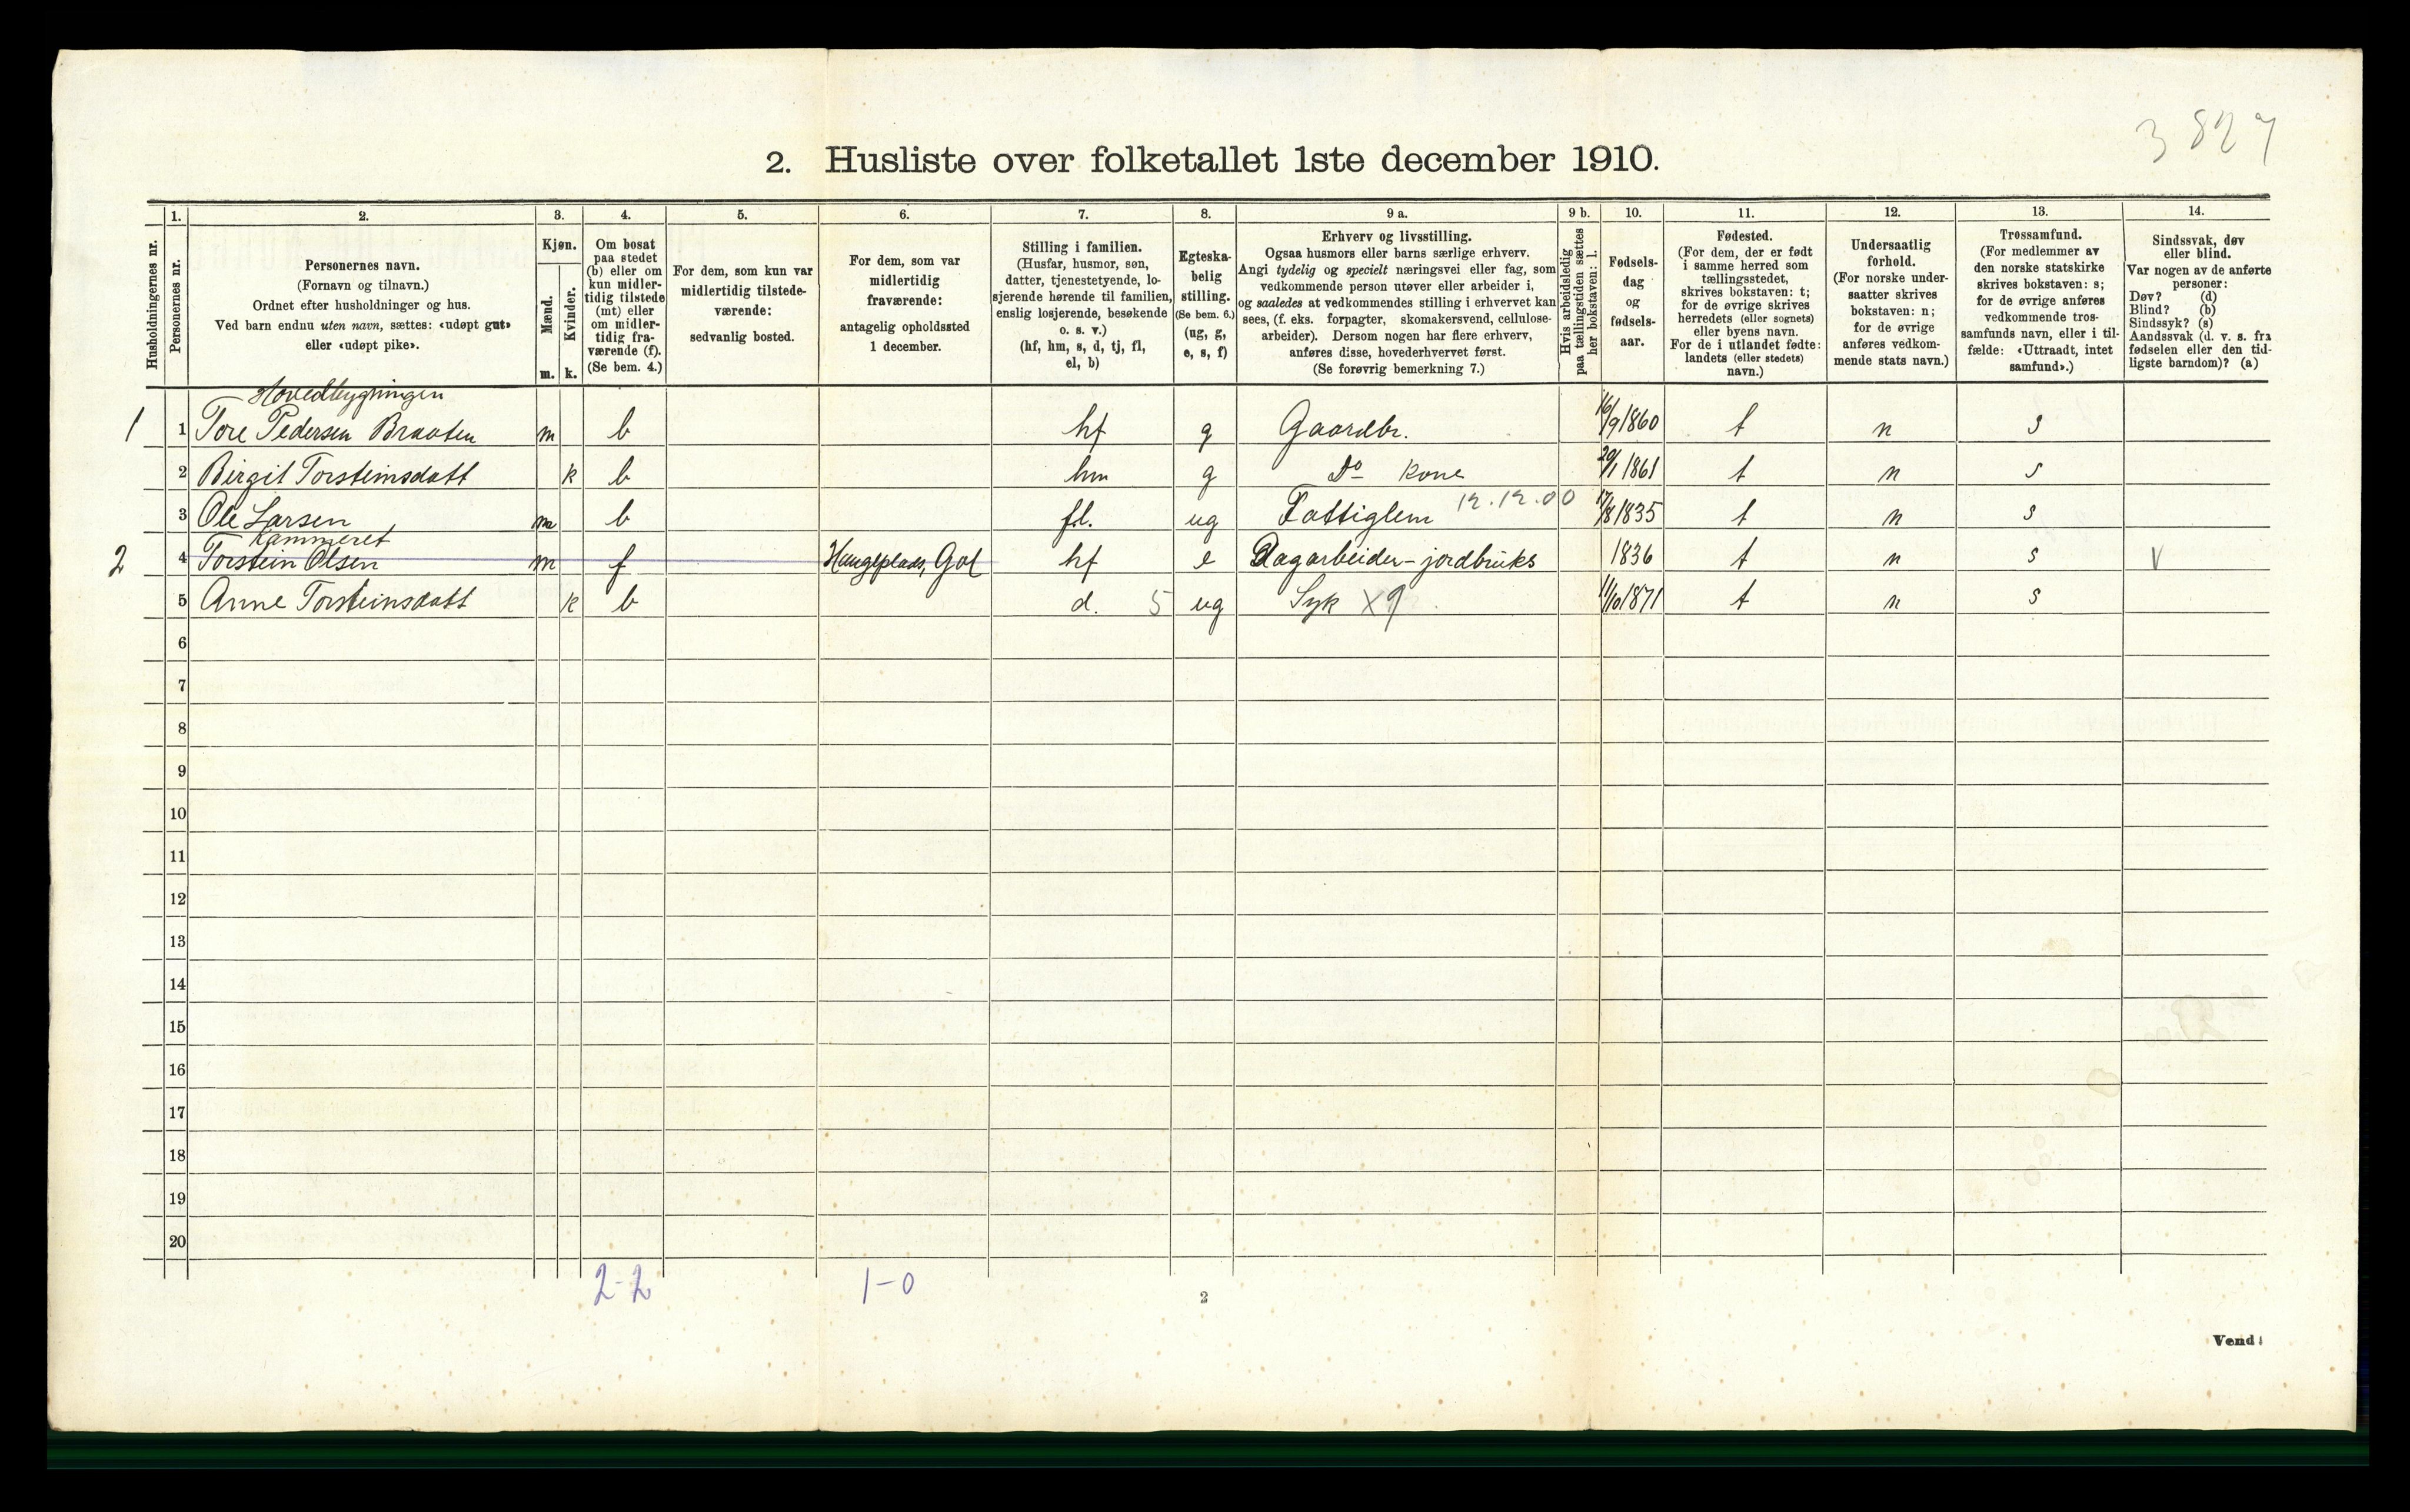 3827
2. Husliste over folketallet 1ste december 1910.
1. 2. 3. 4. 5. 6. 7. 8. 9 a. 9 b. 10. 11. 12. 13. 14.
Husholdningernes nr.
Personernes nr.
Personernes navn.
(Fornavn og tilnavn.)
Ordnet efter husholdninger og hus.
Ved barn endnu uten navn, sættes: «udøpt gut»
eller «udøpt pike».
Kjøn.
Mænd.
Kvinder.
m. k.
Om bosat
paa stedet
(b) eller om
kun midler-
tidig tilstede
(mt) eller
om midler-
tidig fra-
værende (f).
(Se bem. 4.)
For dem, som kun var
midlertidig tilstede-
værende:
sedvanlig bosted.
For dem, som var
midlertidig
fraværende:
antagelig opholdssted
1 december.
Stilling i familien.
(Husfar, husmor, søn,
datter, tjenestetyende, lo-
sjerende hørende til familien,
enslig losjerende, besøkende
o. s. v.)
(hf, hm, s, d, tj, fl,
el, b)
Egteska-
belig
stilling.
(Se bem. 6.)
(ug, g,
e, s, f)
Erhverv og livsstilling.
Ogsaa husmors eller barns særlige erhverv.
Angi tydelig og specielt næringsvei eller fag, som
vedkommende person utøver eller arbeider i,
og saaledes at vedkommendes stilling i erhvervet kan
sees, (f. eks. forpagter, skomakersvend, cellulose-
arbeider). Dersom nogen har flere erhverv,
anføres disse, hovederhvervet først.
(Se forøvrig bemerkning 7.)
Hvis arbeidsledig
paa tællingstiden sættes
her bokstaven: l.
Fødsels-
dag
og
fødsels-
aar.
Fødested.
(For dem, der er født
i samme herred som
tællingsstedet,
skrives bokstaven: t;
for de øvrige skrives
herredets (eller sognets)
eller byens navn.
For de i utlandet fødte:
landets (eller stedets)
navn.)
Undersaatlig
forhold.
(For norske under-
saatter skrives
bokstaven: n;
for de øvrige
anføres vedkom-
mende stats navn.)
Trossamfund.
(For medlemmer av
den norske statskirke
skrives bokstaven: s;
for de øvrige anføres
vedkommende tros-
samfunds navn, eller i til-
fælde: «Uttraadt, intet
samfund».)
Sindssvak, døv
eller blind.
Var nogen av de anførte
personer:
Døv? (d)
Blind? (b)
Sindssyk? (s)
Aandssvak (d. v. s. fra
fødselen eller den tid-
ligste barndom)? (a)
Hovedbygningen
1 1 Tore Pedersen Braaten m b hf g Gaardbr. 16/9 1860 t n s
2 Birgit Torsteinsdatt k b hm g Do Kone 20/1 1861 t n s
3 Ole Larsen m b fl. ug Fattiglem 12.12.00 17/8 1835 t n s
Kammeret
2 4 Torstein Olsen m f Haugeplads, Gol hf e Dagarbeider - jordbruks 1836 t n s V
5 Anne Torsteinsdatt k b d. 5 ug Syk X9 11/10 1871 t n s
6
7
8
9
10
11
12
13
14
15
16
17
18
19
20
2-2 1-0
2
Vend!